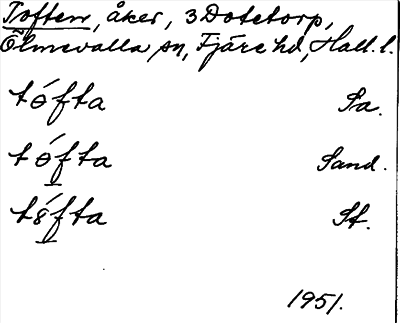 Toften, åker, 3 Dotetorp,
Ölmevalla sn, Fjäre hd, Hall. l.
tófta Sa.
tófta Sand.
t8́fta St.
1951.